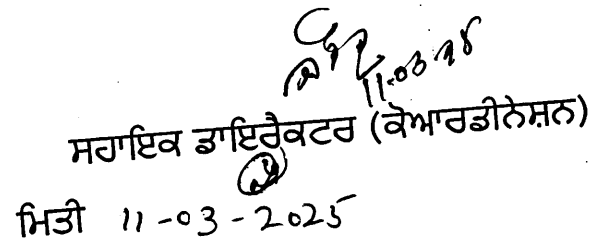 11-03-25
ਸਹਾਇਕ ਡਾਇਰੈਕਟਰ (ਕੋਆਰਡੀਨੇਸ਼ਨ)
ਮਿਤੀ 11-03-2025